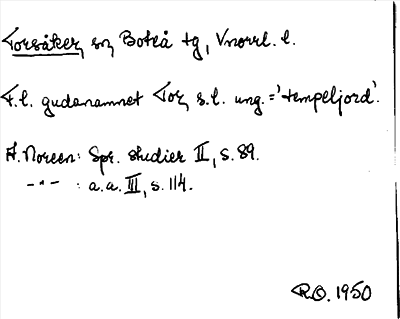 Torsåker, sn, Boteå tg, Vnorrl. l.
F.l. gudanamnet Tor, s.l. ung. = 'tempeljord'.
A. Noreen: Spr. studier II, s. 89.
-"- : a.a. III, s. 114.
R.O. 1950